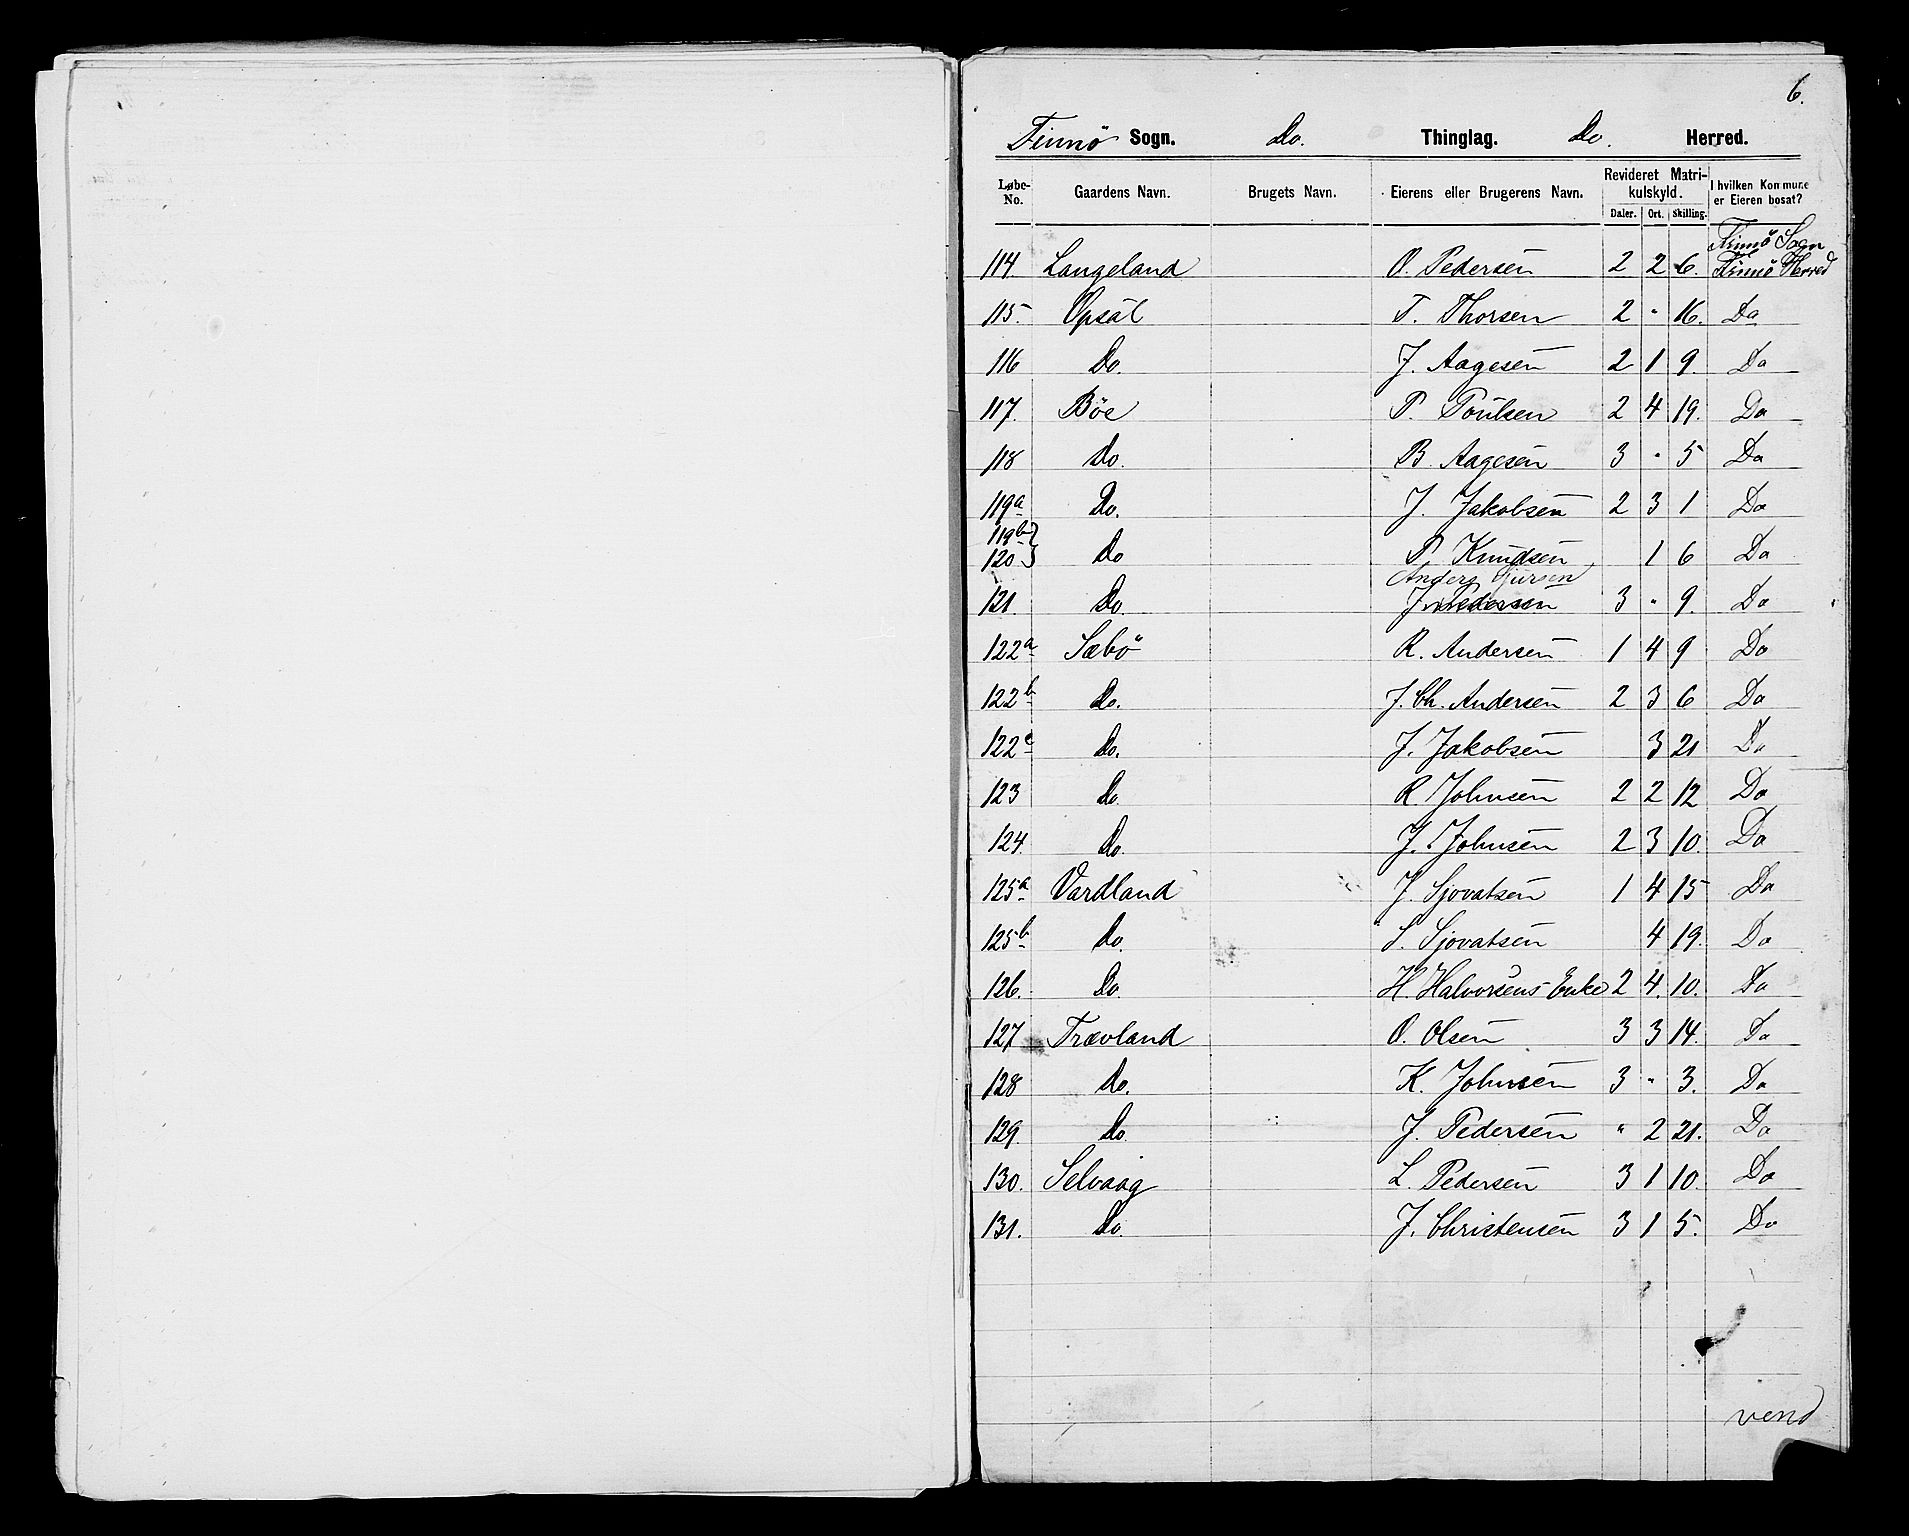 6.
Finnö Sogn. Do. Thinglag. Do. Herred.
Løbe-No. Gaardens Navn. Brugets Navn. Eierens eller Brugerens Navn. Revideret Matrikulskyld. Daler. Ort. Skilling. I hvilken Kommune er Eieren bosat?
Finnö Sogn
114. Langeland O. Pedersen 2 2 6. Finnö Herred
115. Opsal T. Thorsen 2 " 16. Do
116 Do. J. Aagesen 2 1 9. Do
117. Böe P. Poulsen 2 4 19. Do
118 Do. B. Aagesen 3 " 5 Do
119a Do. J. Jakobsen 2 3 1 Do
119b }
120 } Do P. Knudsen 1 6 Do
Anders
121. Do. J. Pedersen 3 " 9. Do
122a Sæbö R. Andersen 1 4 9 Do
122b Do. J. Ch. Andersen 2 3 6 Do
122c Do. J. Jakobsen 3 21 Do
123 Do. R Johnsen 2 2 12 Do
124. Do. J. Johnsen 2 3 10. Do
125a Vardland J. Sjovatsen 1 4 15 Do
125b Do. S. Sjovatsen 4 19. Do
126. Do. H. Halvorsens Enke 2 4. 10. Do
127 Trævland O. Olsen 3 3 14. Do
128 Do. K. Johnsen 3 " 3. Do
129. Do. J. Pedersen " 2 21. Do
130. Selvaag L. Pedersen 3 1 10. Do
131. Do. J. Christensen 3 1 5. Do
vend